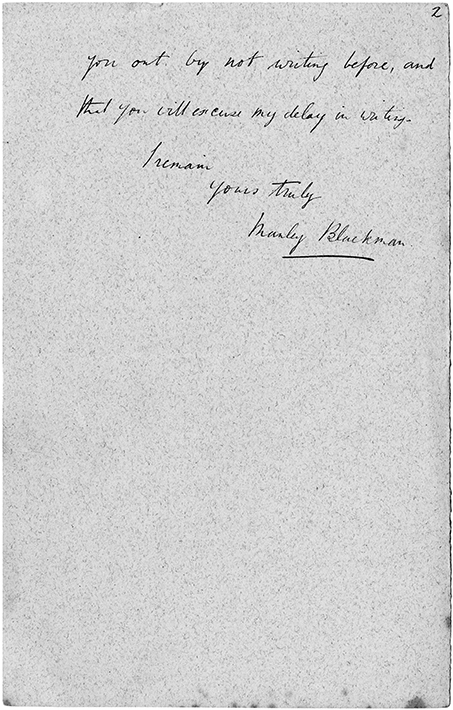 2
you out by not writing before, and
that you will excuse my delay in writing.
I remain
yours truly
Manley Blackman